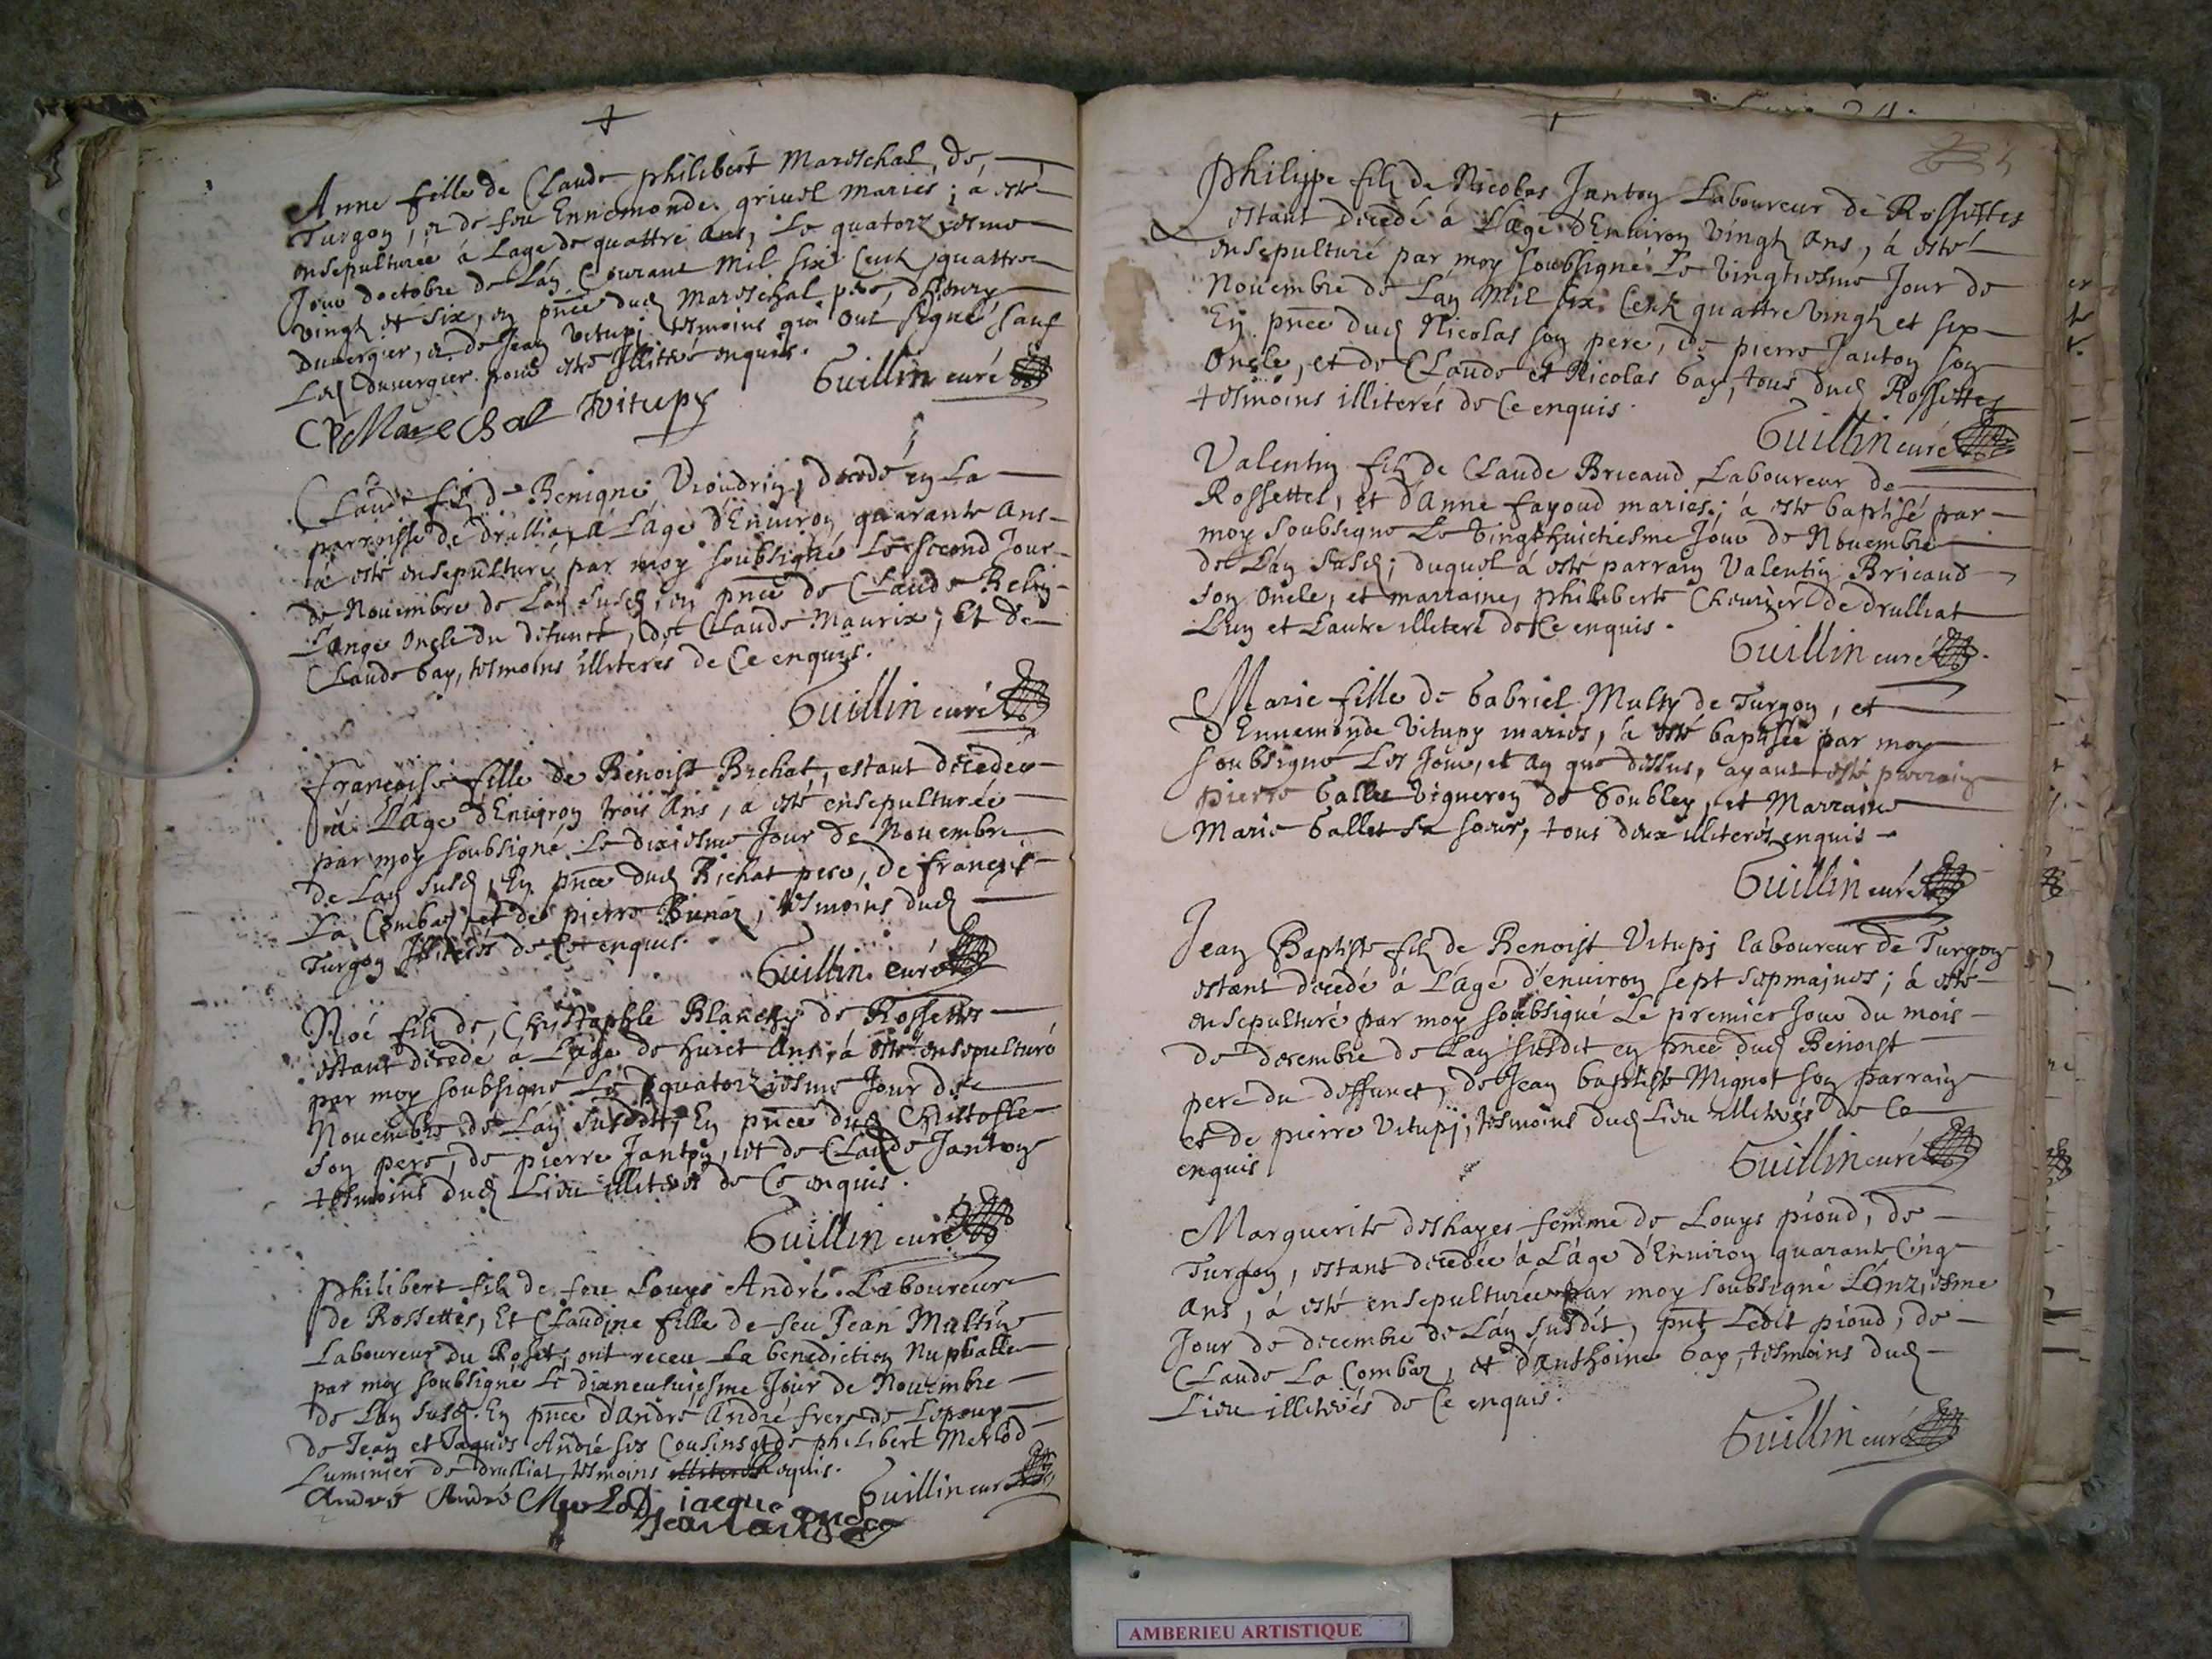 Anne fille de Claude philibert Mareschal, de
Turgon, et de feu Ennemonde griuel mariés; à esté
ensepulturée à Lage de quattre ans, Le quatorziesme
Jour doctobre de Lan Courant Mil six Cent quattre
vingt et six, en pnce dud Mareschal pere,
Duuergier, et de Jean Vitupj tesmoins qui ont signé sauf
Led duuergier pour estre Illitteré enquis.
Guillin curé
CP Marechal Vitupy
Claude filz de Benigne Vioudrin, decedé en La
parroisse de drullia, à Lâge d'Enuiron quarante ans
à esté ensepulturé par moy soubsigné Le second Jour
de Nouembre de Lan susd, en pnce de Claude Belin
Lange Oncle du defunct, de Claude Maurix, Et de
Claude Gay, tesmoins illiterés de Ce enquis.
Guillin curé
françoise fille de Benoist Bichat, estant decedee
à Lâge d'Enuiron trois ans, à esté ensepulturée
par moy soubsigné Le dixiesme Jour de Nouembre
de Lan susd, En pnce dud Bichat pere, de françois
La Combaz, et de pierre Bunaz, tesmoins dud
Turgon Illiterés de Ce enquis.
Guillin curé
Noé filz de Chrystophle Blanchy de Rossettes
estant decedé à Lâge de huict ans, à esté ensepulturé
par moy soubsigné Le quatorziesme Jour de
Nouembre de Lan susdit, En pnce dud Christofle
son pere, de pierre Janton, et de Claude Janton
tesmoins dud Lieu illiterés de Ce enquis.
Guillin curé
Philibert filz de feu Louys André Laboureur
de Rossettes, Et Claudine fille de feu Jean Maltin
Laboureur du Roset, ont receu La benediction Nuptialle
par moy soubsigne Le dixneufuiesme Jour de Nouembre
de Lan susd. En pnce d'André André frere de Lepoux
de Jean et Jaques André ses Cousins et de philibert Merlod
Luminier de drulliat, tesmoins illiterés Requis.
Guillin curé
André André Merlod jacque
jean andre
Philippe filz de Nicolas Janton Laboureur de Rossettes
estant decedé à Lâge d'Enuiron vingt ans, à esté
ensepulturé par moy soubsigné Le vingtiesme Jour de
Nouembre de Lan Mil six Cent quattre vingt et six
En pnce dud Nicolas son pere, de pierre Janton son
Oncle, et de Claude et Nicolas Gay, tous dud Rossettes
tesmoins illiterés de Ce enquis.
Guillin curé
Valentin filz de Claude Bricaud Laboureur de
Rossettes, et d'Anne fayoud mariés; à esté baptisé par
moy soubsigné Le vingthuictiesme Jour de Nouembre
de Lan susd; duquel à esté parrain Valentin Bricaud
son Oncle, et marraine, philiberte Cheurier de drulliat
Lun et Lautre illiteré de Ce enquis.
Guillin curé
Marie fille de Gabriel Multy de Turgon, et
d'Ennemonde Vitupy mariés, à esté baptisée par moy
soubsigné Les Jour, et an que dessus, ayant esté parrain
Pierre Gallet Vigneron de Soubley, et Marraine
Marie Gallet sa soeur, tous deux illiterés enquis
Guillin curé
Jean Baptiste filz de Benoist Vitupj laboureur de Turgon
estant decedé à Lâge d'enuiron sept sepmaines; à esté
ensepulturé par moy soubsigné Le premier Jour du mois
de decembre de Lan susdit en pnce dud Benoist
pere du deffunct, de Jean baptiste Mignot son parrain
et de pierre Vitupj, tesmoins dud Lieu illiterés de Ce
enquis
Guillin curé
Marguerite deshayes femme de Louys pioud, de
Turgon, estant decedée à Lâge d'Enuiron quarante Cinq
ans, à esté ensepulturée par moy soubsigné L'onziesme
Jour de decembre de Lan susdit, pnt Ledit pioud, de
Claude La Combaz, et d'anthoine Gay, tesmoins dud
Lieu illiterés de Ce enquis.
Guillin curé
AMBERIEU ARTISTIQUE